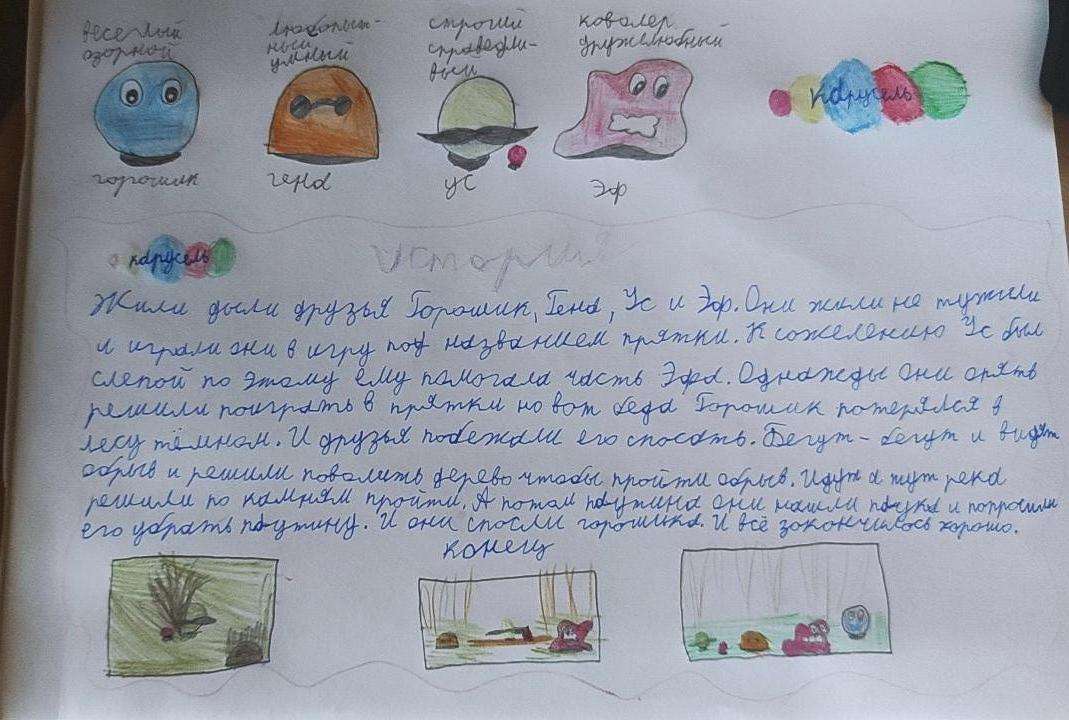 весёлый озорной
любопыт-
ный
умный
строгий
справедли-
вый
ковалер
дружелюбный
карусель
горошик
гена
ус
эф
карусель
истории
Жили дыли друзья Горошик, Гена, Ус и Эф. Они жили не тужили
и играли они в игру под названием прятки. К сожелению Ус был
слепой по этому ему помогала часть Эфа. Однажды они опять
решили поиграть в прятки но вот беда Горошик потерялся в
лесу тёмном. И друзья побежали его спосать. Бегут-бегут и видят
обрыв и решили повалить дерево чтобы пройти обрыв. Идут а тут река
решили по камням пройти. А потом паутина они нашли паука и попросили
его убрать паутину. И они спосли горошика. И всё закончилось хорошо.
конец